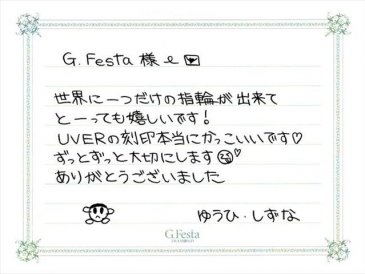 G.Festa 様 へ
世界に一つだけの指輪が出来て
とーっても嬉しいです!
UVERの刻印本当にかっこいいです♡
ずっとずっと大切にします♡
ありがとうございました
ゆうひ・しずな
G.Festa